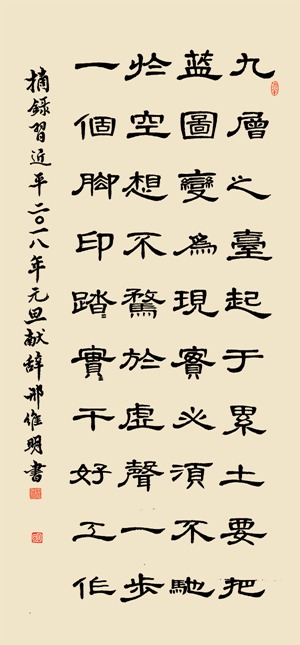 九層之臺起于累土要把
藍圖變為現實必須不馳
扵空想不騖於虛聲一步
一個腳印踏實干好工作
摘錄習近平二〇一八年元旦献辞邢維明書